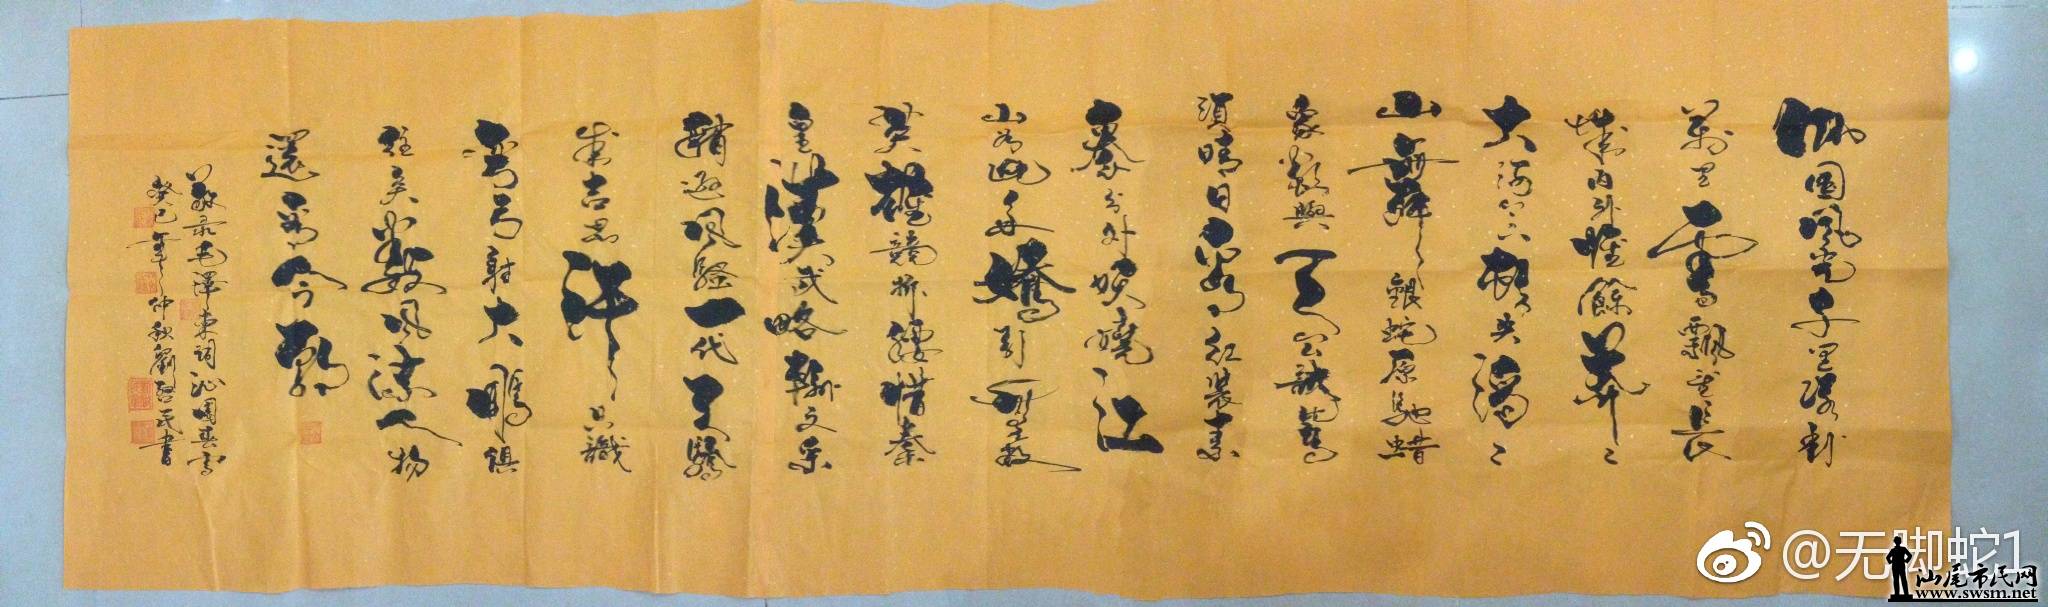 北國風光千里冰封
萬里雪飄望長
城内外惟餘莽〻
大河上下頓失滔〻
山舞銀蛇原馳蜡
象欲與天公試比高
須晴日看紅裝素
裹分外妖嬈江
山如此多嬌引無數
英雄競折腰惜秦
皇漢武略輸文采
稍遜風騷一代天驕
成吉思汗只識
彎弓射大鵰俱
往矣數風流人物
還看今朝
敬录毛澤東詞沁園春雪
癸巳年仲秋劉啟民書
@无脚蛇1
汕尾市民网
www.swsm.net